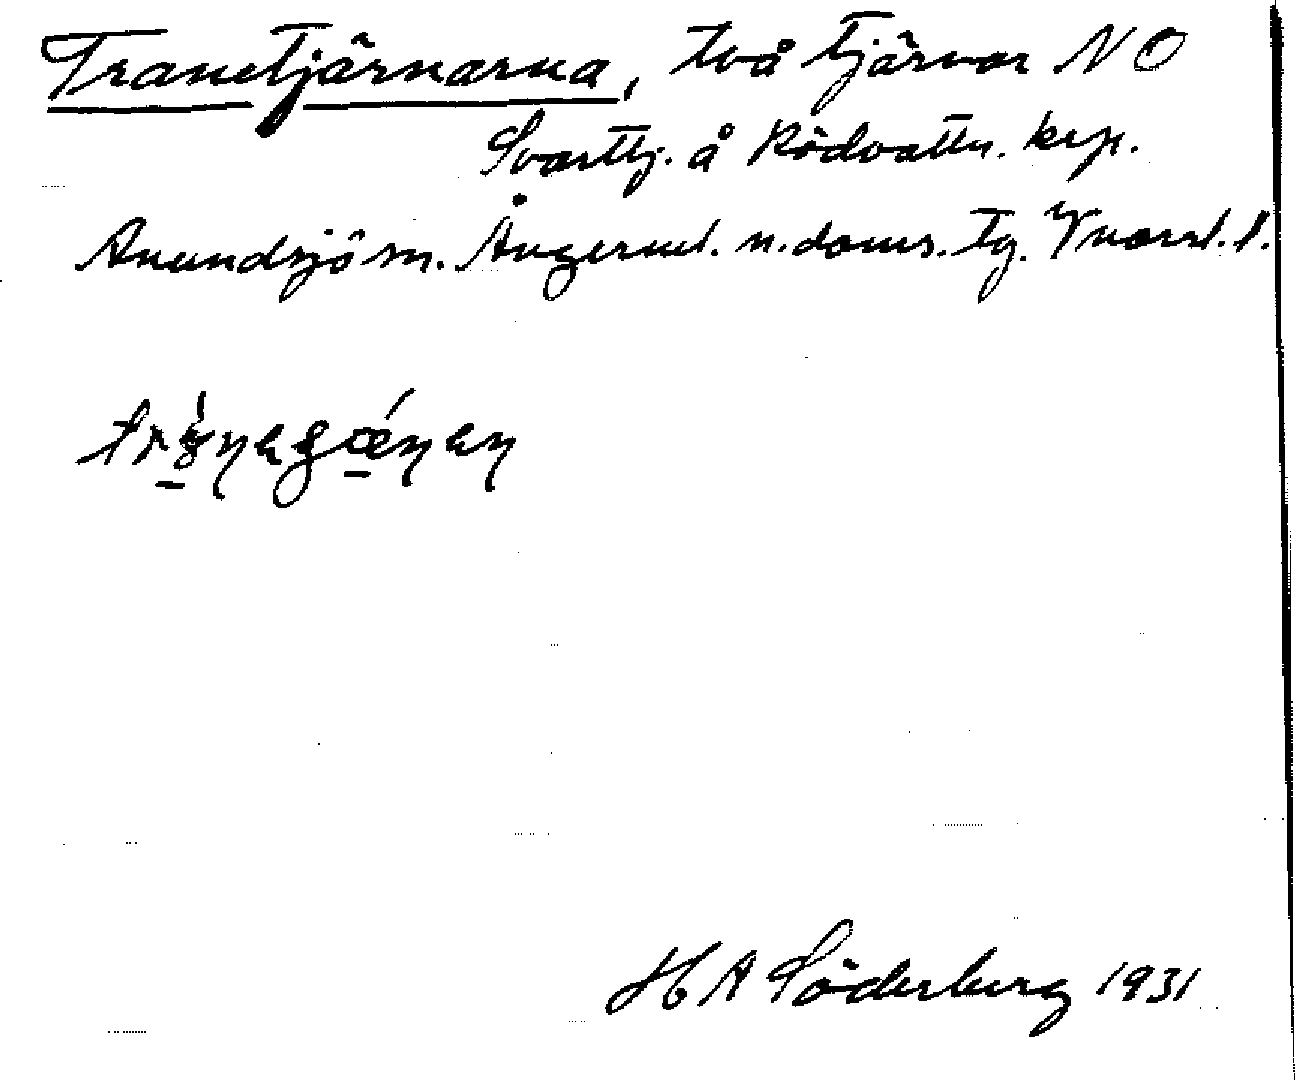 Tranetjärnarna, två tjärnar NO
Svarttj. å Rödvattn. krp.
Anundsjö sn. Ångerml. n. doms. Tg. Y norrl. l.
H A Söderberg 1931